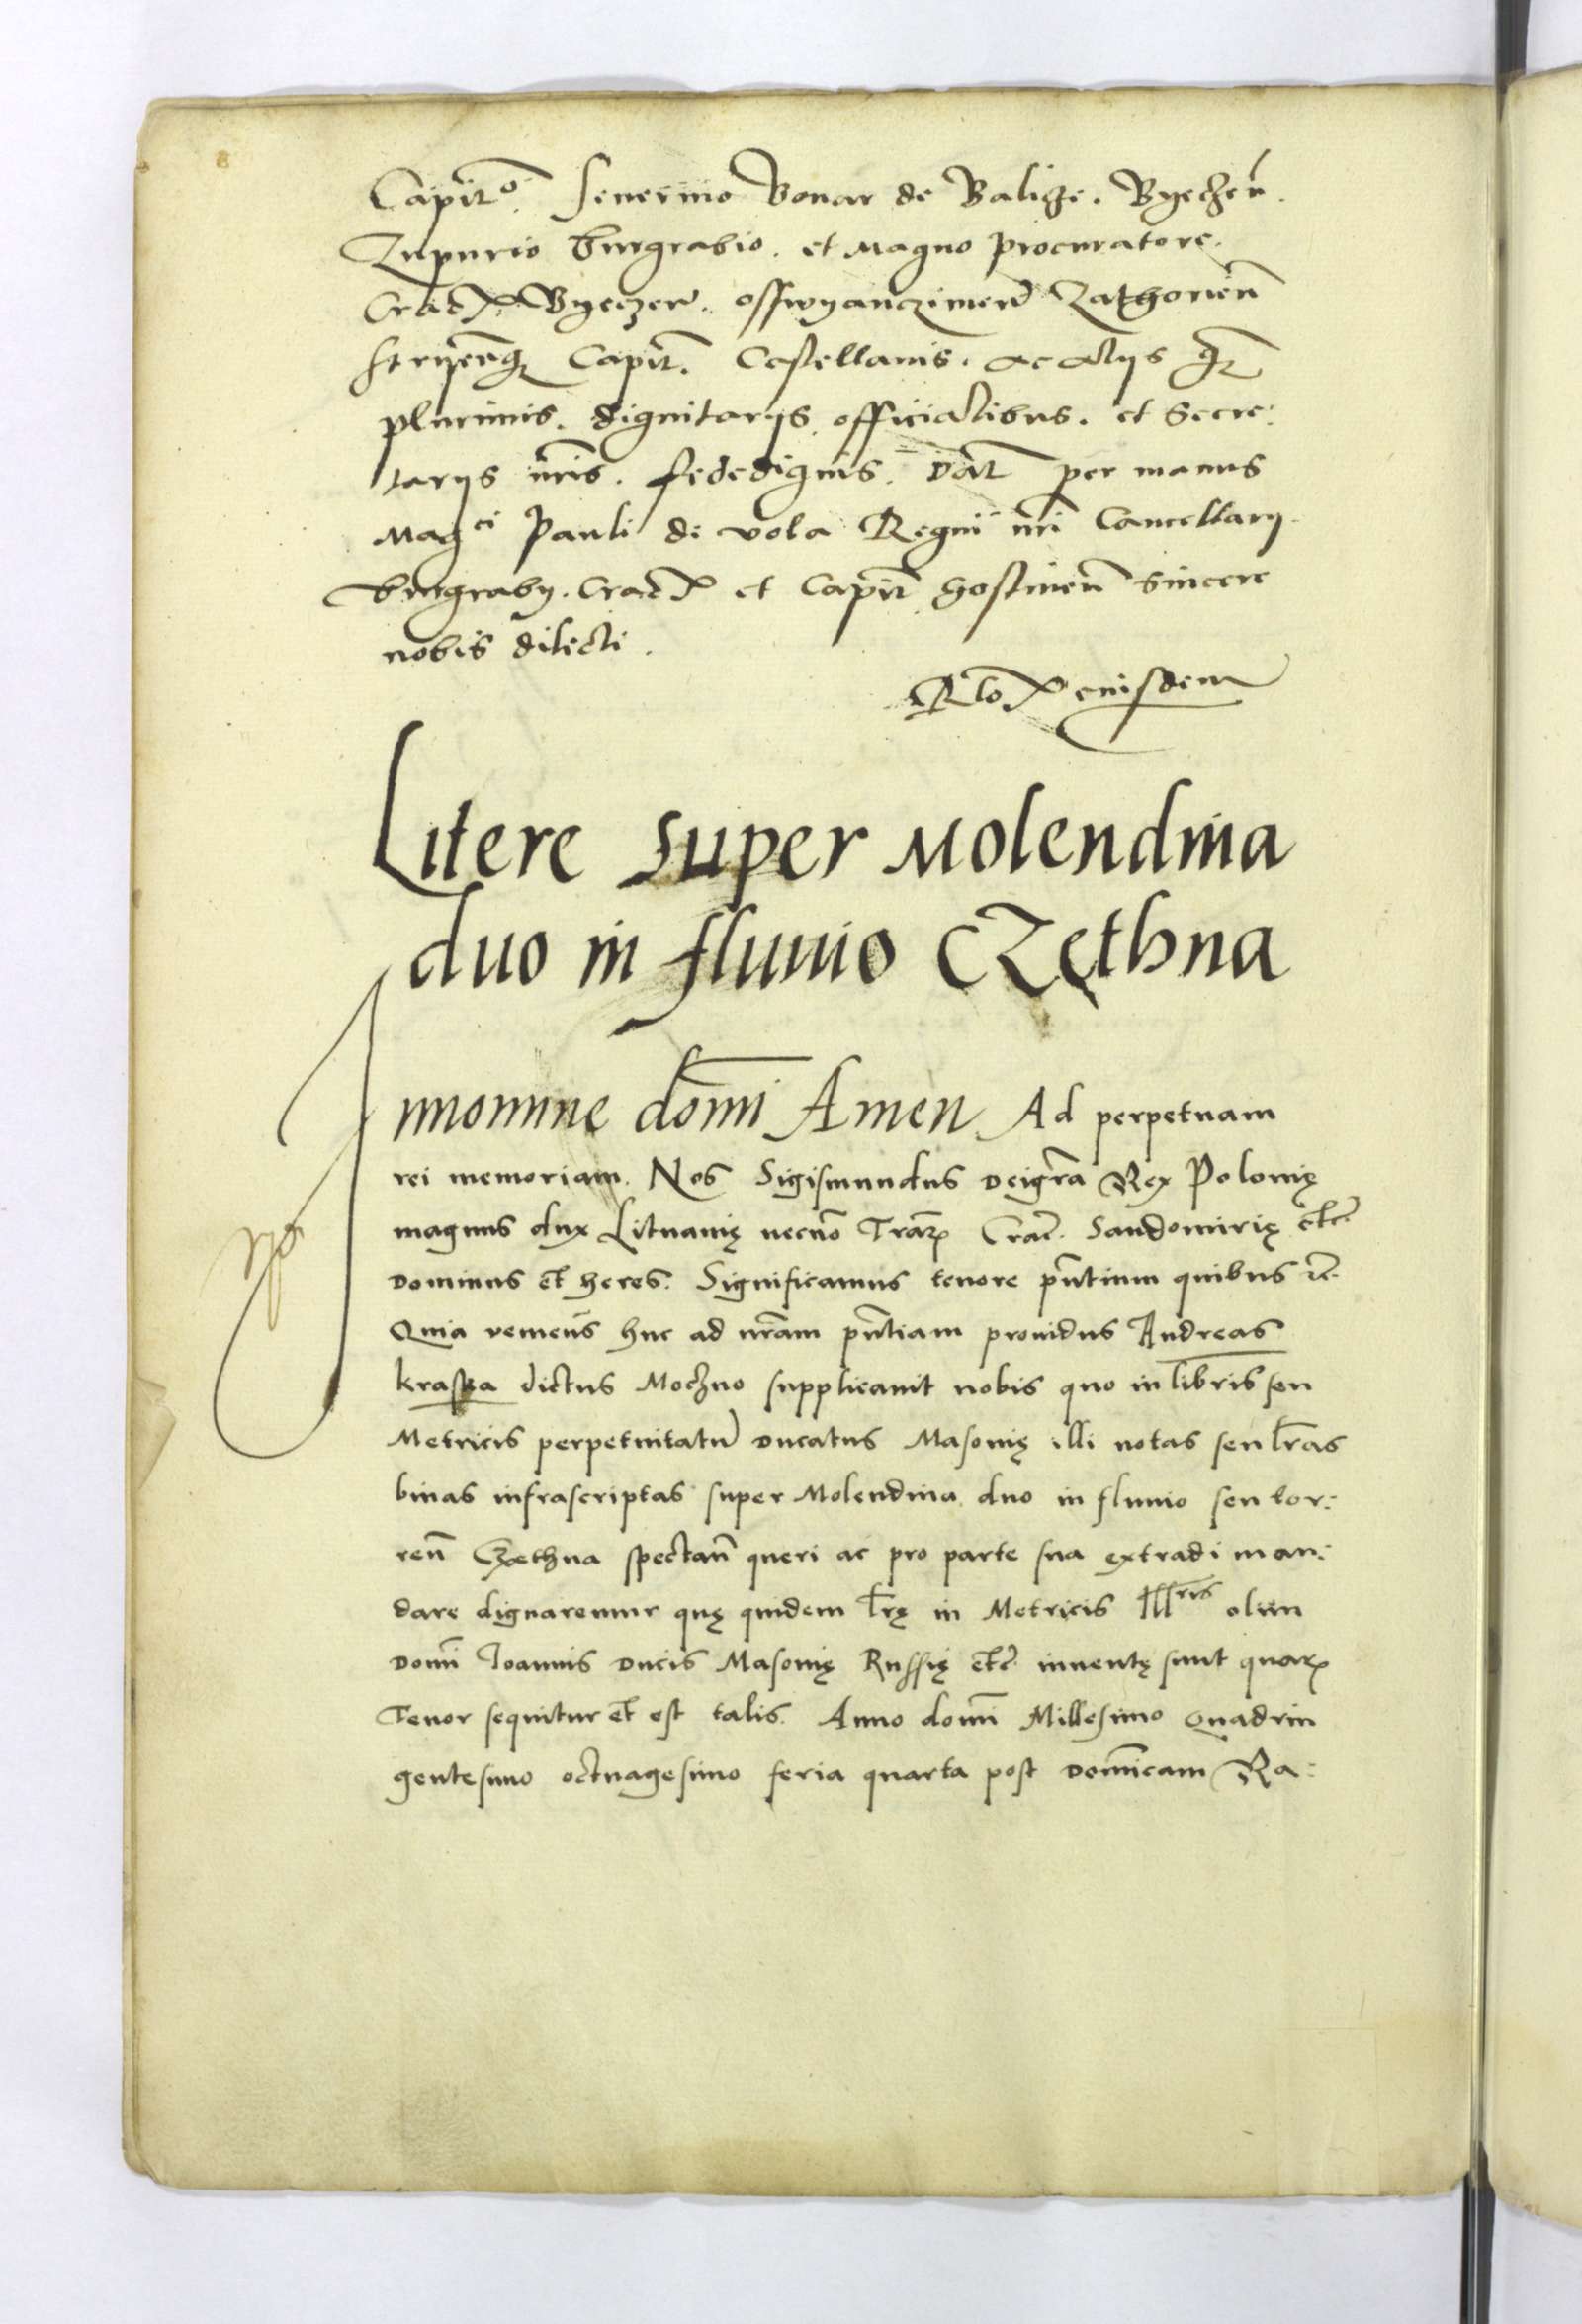 Capit°. Seuerino Bonar de Balicze. Byechen̄.
Zupnrio burgrabio. et Magno procuratore.
Crac̄. Byeczen̄. osswyanczimen̄ Zathorien̄
strijen̄q; Capit̄. Castellanis. ac alijs q̄
plurimis. dignitarijs. officialibus. et Secre:
tarijs nr̄is. fidedignis. Dat̄ per manus
Mag^ci Pauli de vola Regni nr̄i Cancellarij.
burgrabij. Crac̄ et Capit̄ gostinen̄ Sincere
nobis dilecti.
Rlō eiusdem
Litere super Molendina
duo in fluuio CZęthna
Innomine domī Amen Ad perpetuam
rei memoriam. Nos Sigismundus Deigr̄a Rex Polonię
magnus dux Lituanię necnō Trar̄ Crac̄. Sandomirię etc̄
Dominus et heres. Significamus tenore pn̄tium quibus ꝛc̄.
Quia veniens huc ad nr̄am pn̄tiam prouidus Andreas
kraska dictus Moczno supplicauit nobis quo in libris seu
Metricis perpetuitatū Ducatus Masouię illi notas seu lr̄as
binas infrascriptas super Molendina duo in fluuio seu tor:
ren̄ Czethna spectan̄ queri ac pro parte sua extradi man:
dare dignaremur quę quidem lr̄ę in Metricis Ill^ris olim
Domī Joannis Ducis Masouię Russię etc̄ inuentę sunt quaꝝ
Tenor sequitur et est talis. Anno domī Millesimo Quadrin
gentesimo octuagesimo feria quarta post Domīcam Ra: